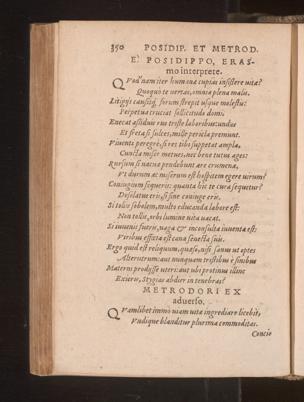 350 POSIDIP. ET METROD.
E POSIDIPPO, ERAS-
mo interprete.
QVod nam iter humanæ cupias insistere vitæ?
Quoquò te vertas, omnia plena malis.
Litigijs causisq́; forum strepit usque molestis:
Perpetuâ cruciat sollicitudo domi.
Enecat assiduis rus triste laboribus: undis
Et freta si sulces, mille pericla premunt.
Vivente peregrè, si res tibi suppetat ampla,
Cuncta miser metues, nec bene tutus ages:
Rursum si vacua pendebunt ære crumenæ,
Vt durum ac miserum est hospitem egere virum?
Coniugium sequeris: quanta hic te cura sequetur?
Desolatus eris, si sine coniuge eris.
Si tollis sobolem, multo educanda labore est:
Non tollis, orbi lumine vita vacat.
Si iuvenis fueris, vaga & inconsulta iuventa est:
Viribus effœta est cana senecta suis.
Ergo quid est reliquum, quæso, nisi sanus ut optes
Alterutrum: aut nunquam tristibus è sinibus
Materni prodisse uteri: aut ubi protinus illinc
Exieris, Stygias abdier in tenebras?
METRODORI EX
adverso.
QVamlibet immò viam vitæ ingrediare licebit,
Vndique blanditur plurima commoditas.
Concio